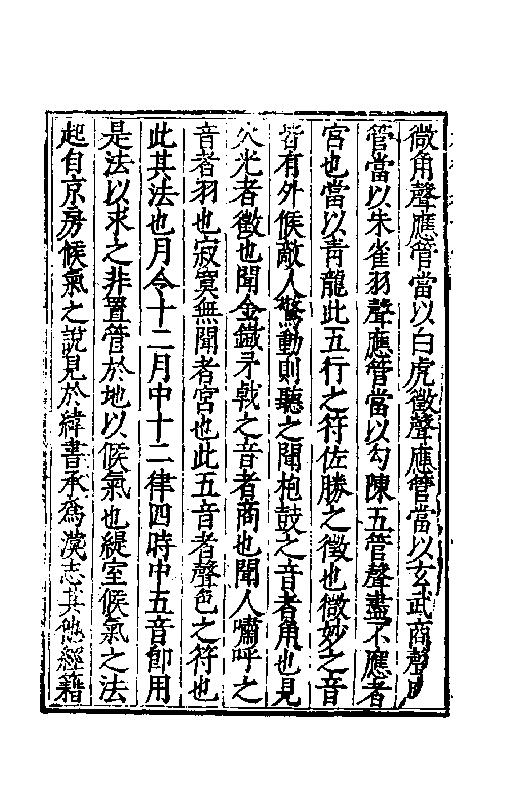 徵角聲應管當以白虎徵聲應管當以玄武商聲應
管當以朱雀羽聲應管當以勾陳五管聲盡不應者
宮也當以青龍此五行之符佐勝之徵也微妙之音
皆有外候敵人驚動則聽之聞枹鼓之音者角也見
火光者徵也聞金鐵矛戟之音者商也聞人嘯呼之
音者羽也寂寞無聞者宮也此五音者聲色之符也
此其法也月令十二月中十二律四時中五音卽用
是法以求之非置管於地以候氣也緹室候氣之法
起自京房候氣之說見於緯書承為漢志其他經籍